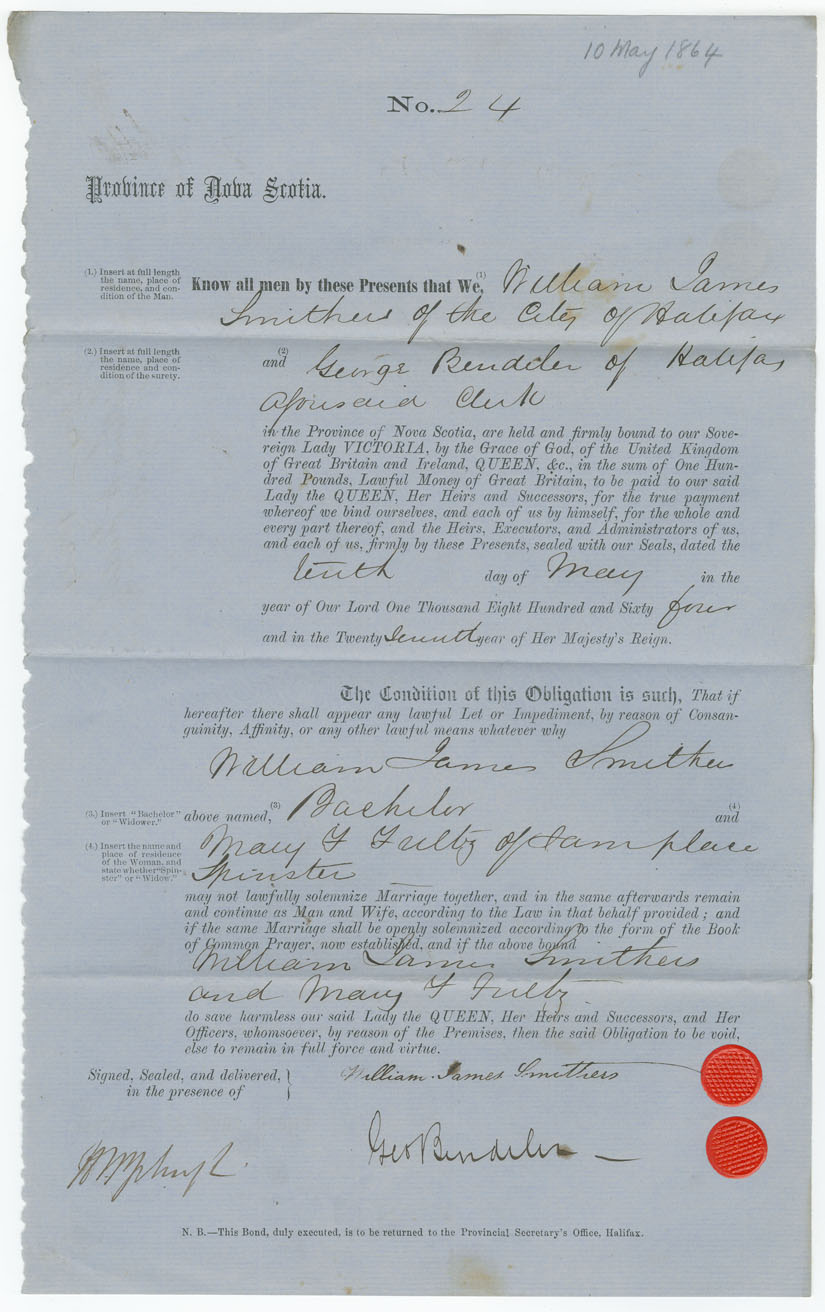 10 May 1864
No. 24
Province of Nova Scotia.
(1.) Insert at full length
the name, place of
residence, and con-
dition of the Man.
Know all men by these Presents that We, (1) William James
Smithers of the City of Halifax
(2.) Insert at full length
the name, place of
residence and con-
dition of the surety.
and (2) George Bendeler of Halifax
aforesaid Clerk
in the Province of Nova Scotia, are held and firmly bound to our Sove-
reign Lady VICTORIA, by the Grace of God, of the United Kingdom
of Great Britain and Ireland, QUEEN, &c., in the sum of One Hun-
dred Pounds, Lawful Money of Great Britain, to be paid to our said
Lady the QUEEN, Her Heirs and Successors, for the true payment
whereof we bind ourselves, and each of us by himself, for the whole and
every part thereof, and the Heirs, Executors, and Administrators of us,
and each of us, firmly by these Presents, sealed with our Seals, dated the
tenth day of May in the
year of Our Lord One Thousand Eight Hundred and Sixty four
and in the Twenty seventh year of Her Majesty's Reign.
The Condition of this Obligation is such, That if
hereafter there shall appear any lawful Let or Impediment, by reason of Consan-
guinity, Affinity, or any other lawful means whatever why
William James Smithers
(3.) Insert "Bachelor"
or "Widower."
above named, (3) Bachelor and (4)
(4.) Insert the name and
place of residence
of the Woman, and
state whether "Spin-
ster" or "Widow."
Mary F Fultz of same place
Spinster
may not lawfully solemnize Marriage together, and in the same afterwards remain
and continue as Man and Wife, according to the Law in that behalf provided; and
if the same Marriage shall be openly solemnized according to the form of the Book
of Common Prayer, now established, and if the above bound
William James Smithers
and Mary F Fultz
do save harmless our said Lady the QUEEN, Her Heirs and Successors, and Her
Officers, whomsoever, by reason of the Premises, then the said Obligation to be void,
else to remain in full force and virtue.
Signed, Sealed, and delivered,
in the presence of
William James Smithers
Geo Bendeler
N. B.—This Bond, duly executed, is to be returned to the Provincial Secretary's Office, Halifax.